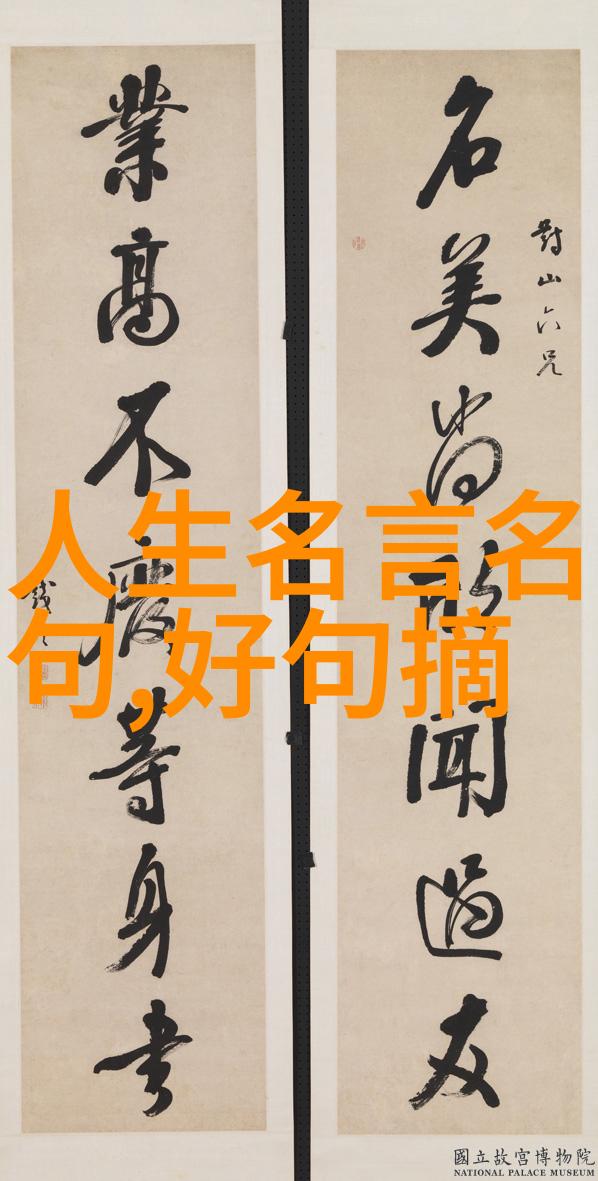 名美尚欣聞過友
對山六兄
業高不廢等身書
人生名言名
句,好句摘
國立故宮博物院
NATIONAL PALACE MUSEUM